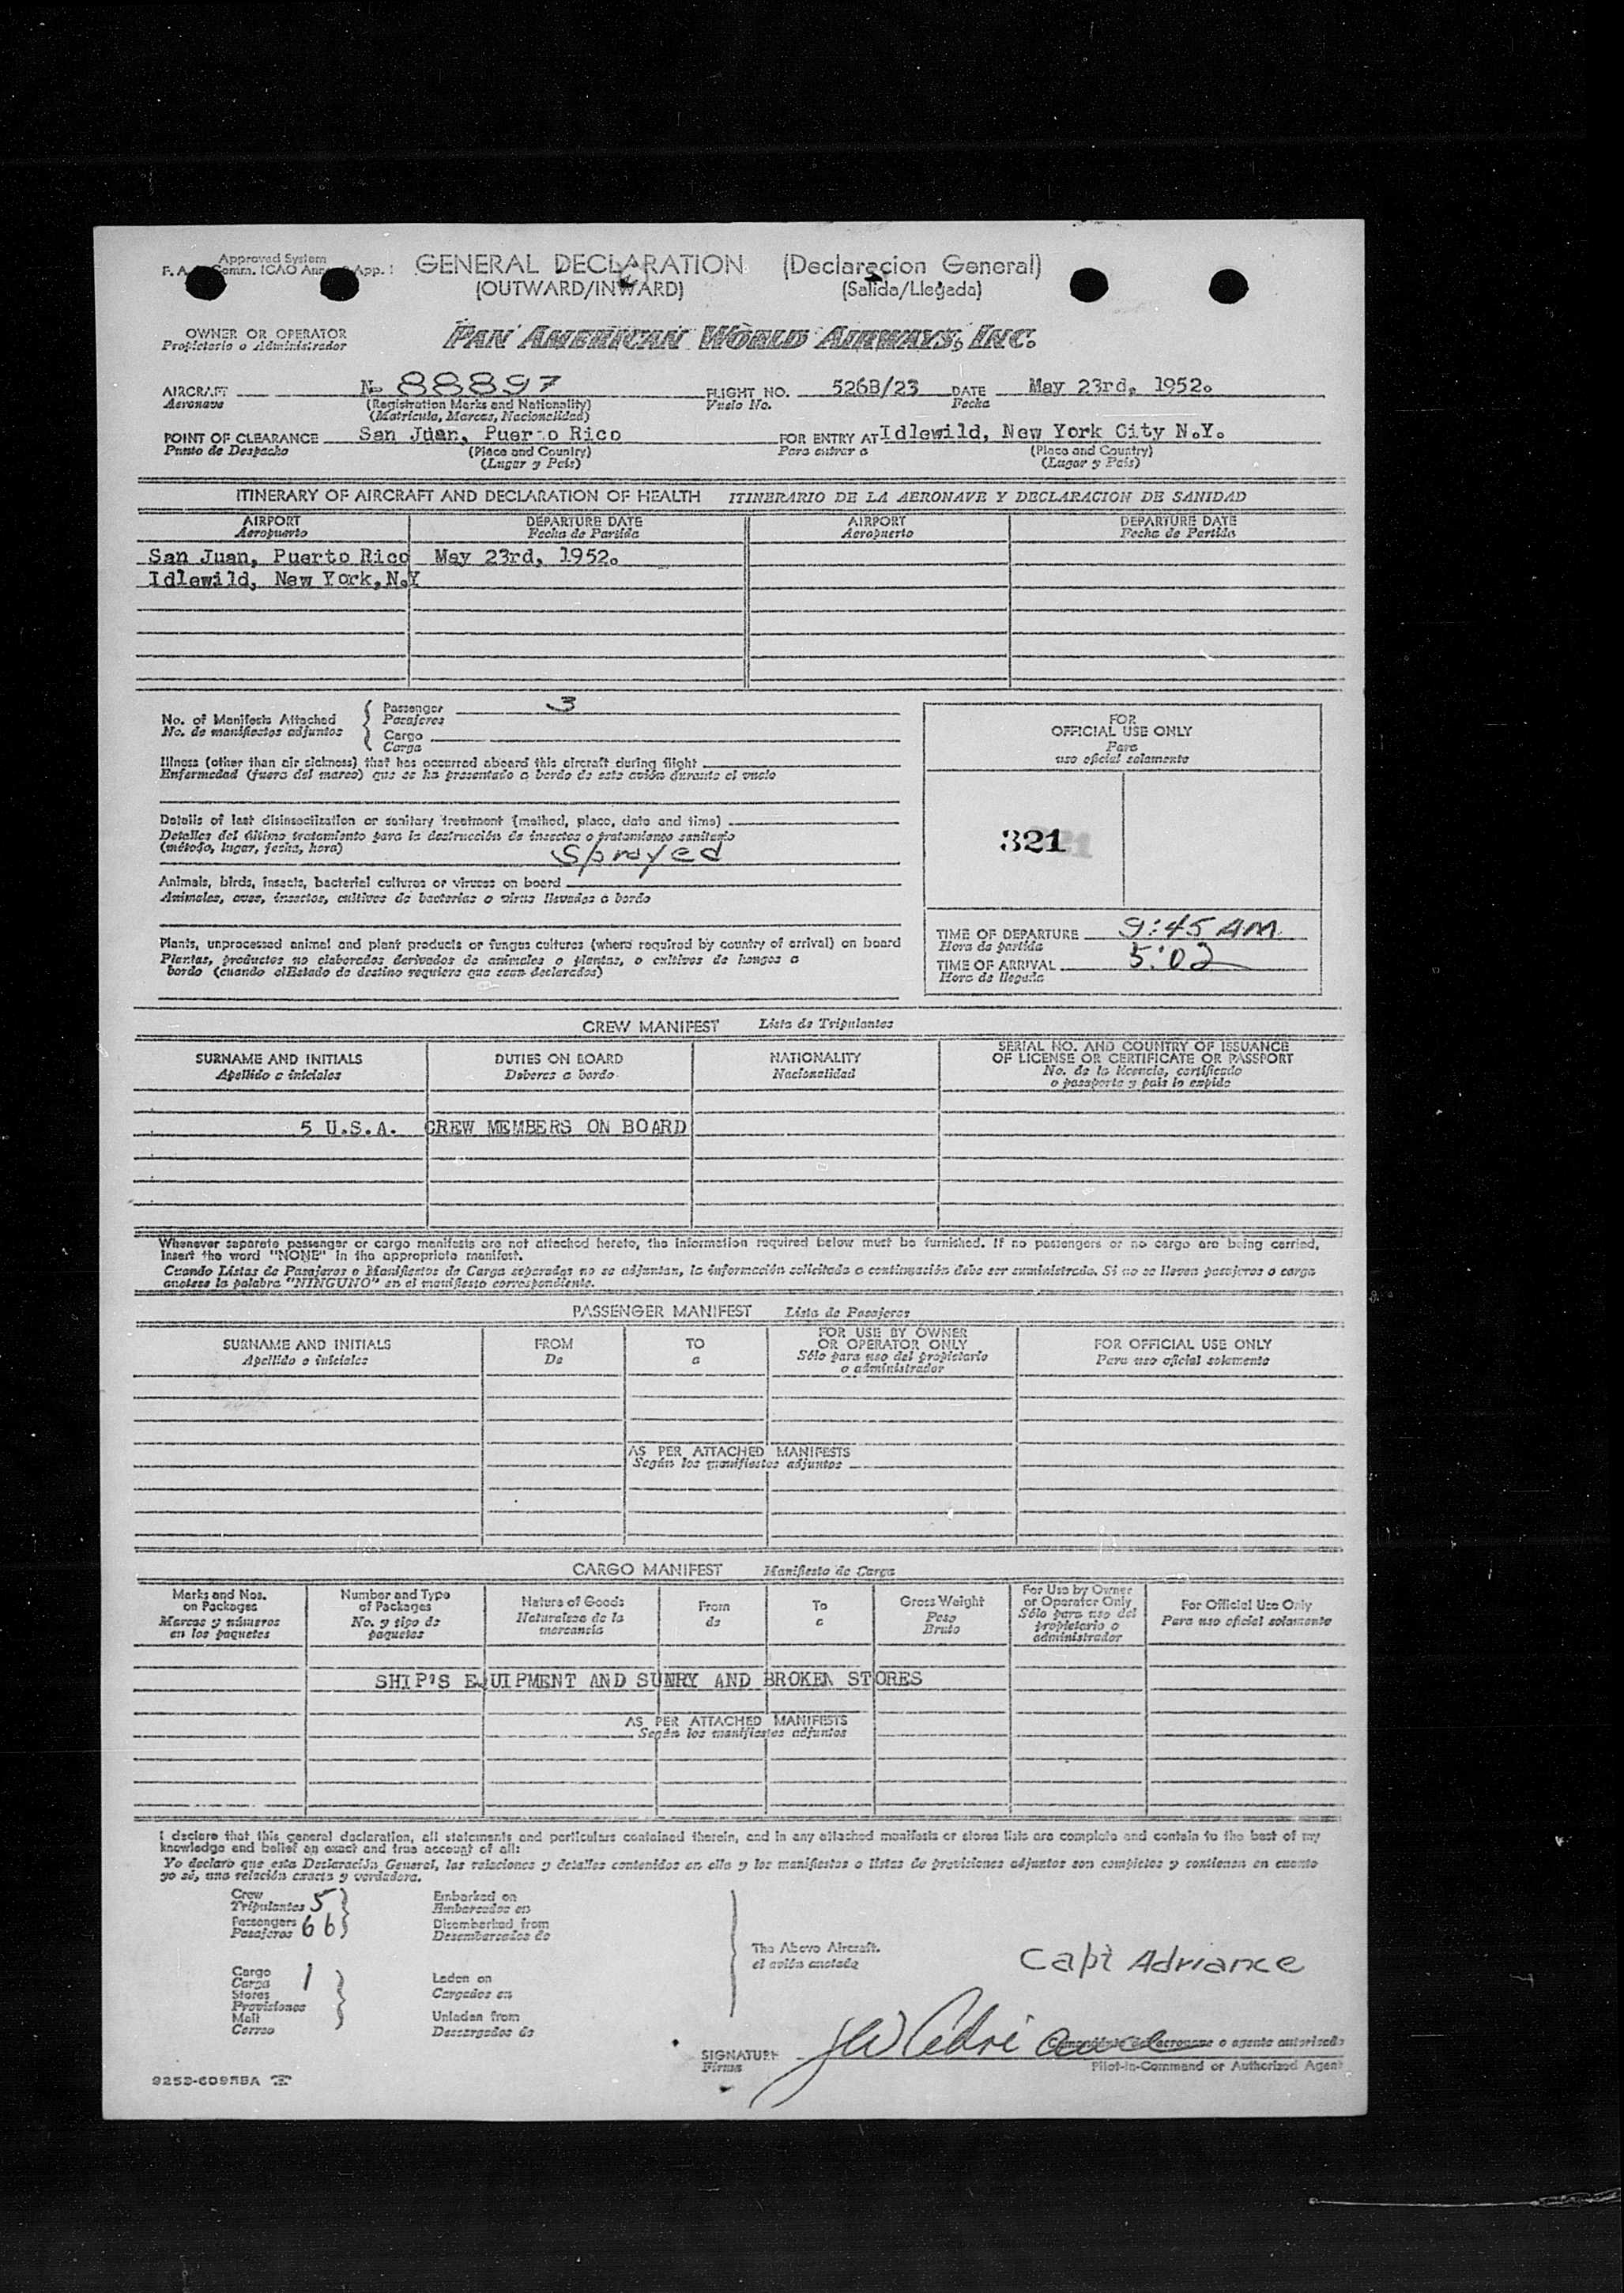 Approved System
GENERAL DECLARATION (Declaracion General)
(OUTWARD/INWARD) (Salida/Llegada)
OWNER OR OPERATOR
Propietario o Administrador
PAN AMERICAN WORLD AIRWAYS, INC.
AIRCRAFT N 88897 FLIGHT NO. 526B/23 DATE May 23rd, 1952.
Aeronave (Registration Marks and Nationality) Vuelo No. Fecha
(Matricula, Marcas, Nacionalidad)
POINT OF CLEARANCE San Juan, Puerto Rico FOR ENTRY AT Idlewild, New York City N.Y.
Punto de Despacho (Place and Country) Para entrar a (Place and Country)
(Lugar y Pais) (Lugar y Pais)
ITINERARY OF AIRCRAFT AND DECLARATION OF HEALTH ITINERARIO DE LA AERONAVE Y DECLARACION DE SANIDAD
AIRPORT DEPARTURE DATE AIRPORT DEPARTURE DATE
Aeropuerto Fecha de Partida Aeropuerto Fecha de Partida
San Juan, Puerto Rico May 23rd, 1952.
Idlewild, New York, N.Y
No. of Manifests Attached
No. de manifiestos adjuntos
Passenger 3
Pasajeros
Cargo
Carga
Illness (other than air sickness) that has occurred aboard this aircraft during flight
Enfermedad (fuera del mareo) que se ha presentado a bordo de este avión durante el vuelo
Details of last disinsectization or sanitary treatment (method, place, date and time)
Detalles del último tratamiento para la destrucción de insectos o tratamiento sanitario
(método, lugar, fecha, hora)
Sprayed
Animals, birds, insects, bacterial cultures or viruses on board
Animales, aves, insectos, cultivos de bacterias o virus llevados a bordo
Plants, unprocessed animal and plant products or fungus cultures (where required by country of arrival) on board
Plantas, productos no elaborados derivados de animales o plantas, o cultivos de hongos a
bordo (cuando el Estado de destino requiera que sean declarados)
FOR
OFFICIAL USE ONLY
Para
uso oficial solamente
321
TIME OF DEPARTURE 9:45 AM
Hora de partida
TIME OF ARRIVAL 5:02
Hora de llegada
CREW MANIFEST Lista de Tripulantes
SURNAME AND INITIALS DUTIES ON BOARD NATIONALITY SERIAL NO. AND COUNTRY OF ISSUANCE
OF LICENSE OR CERTIFICATE OR PASSPORT
Apellido e iniciales Deberes a bordo Nacionalidad No. de la licencia, certificado
o pasaporte y pais lo expide
5 U.S.A. CREW MEMBERS ON BOARD
Whenever separate passenger or cargo manifests are not attached hereto, the information required below must be furnished. If no passengers or no cargo are being carried,
insert the word "NONE" in the appropriate manifest.
Cuando Listas de Pasajeros o Manifiestos de Carga separados no se adjuntan, la información solicitada a continuación debe ser suministrada. Si no se llevan pasajeros o carga
anotese la palabra "NINGUNO" en el manifiesto correspondiente.
PASSENGER MANIFEST Lista de Pasajeros
SURNAME AND INITIALS FROM TO FOR USE BY OWNER
OR OPERATOR ONLY FOR OFFICIAL USE ONLY
Apellido e iniciales De a Sólo para uso del propietario
o administrador Para uso oficial solamente
AS PER ATTACHED MANIFESTS
Según los manifiestos adjuntos
CARGO MANIFEST Manifiesto de Carga
Marks and Nos.
on Packages
Marcas y números
en los paquetes
Number and Type
of Packages
No. y tipo de
paquetes
Nature of Goods
Naturaleza de la
mercancia
From
de
To
a
Gross Weight
Peso
Bruto
For Use by Owner
or Operator Only
Sólo para uso del
propietario o
administrador
For Official Use Only
Para uso oficial solamente
SHIP'S EQUIPMENT AND SUNRY AND BROKEN STORES
AS PER ATTACHED MANIFESTS
Según los manifiestos adjuntos
I declare that this general declaration, all statements and particulars contained therein, and in any attached manifests or stores lists are complete and contain to the best of my
knowledge and belief an exact and true account of all:
Yo declaro que esta Declaración General, las relaciones y detalles contenidos en ella y los manifiestos o listas de provisiones adjuntos son completos y contienen en cuanto
yo sé, una relación exacta y verdadera.
Crew 5
Tripulantes
Passengers 66
Pasajeros
Embarked on
Embarcados en
Disembarked from
Desembarcados de
Cargo 1
Carga
Stores
Provisiones
Mail
Correo
Laden on
Cargados en
Unladen from
Descargados de
The Above Aircraft.
el avión anotado
Capt Adriance
SIGNATURE
Firma
o agente autorizado
Pilot-in-Command or Authorized Agent